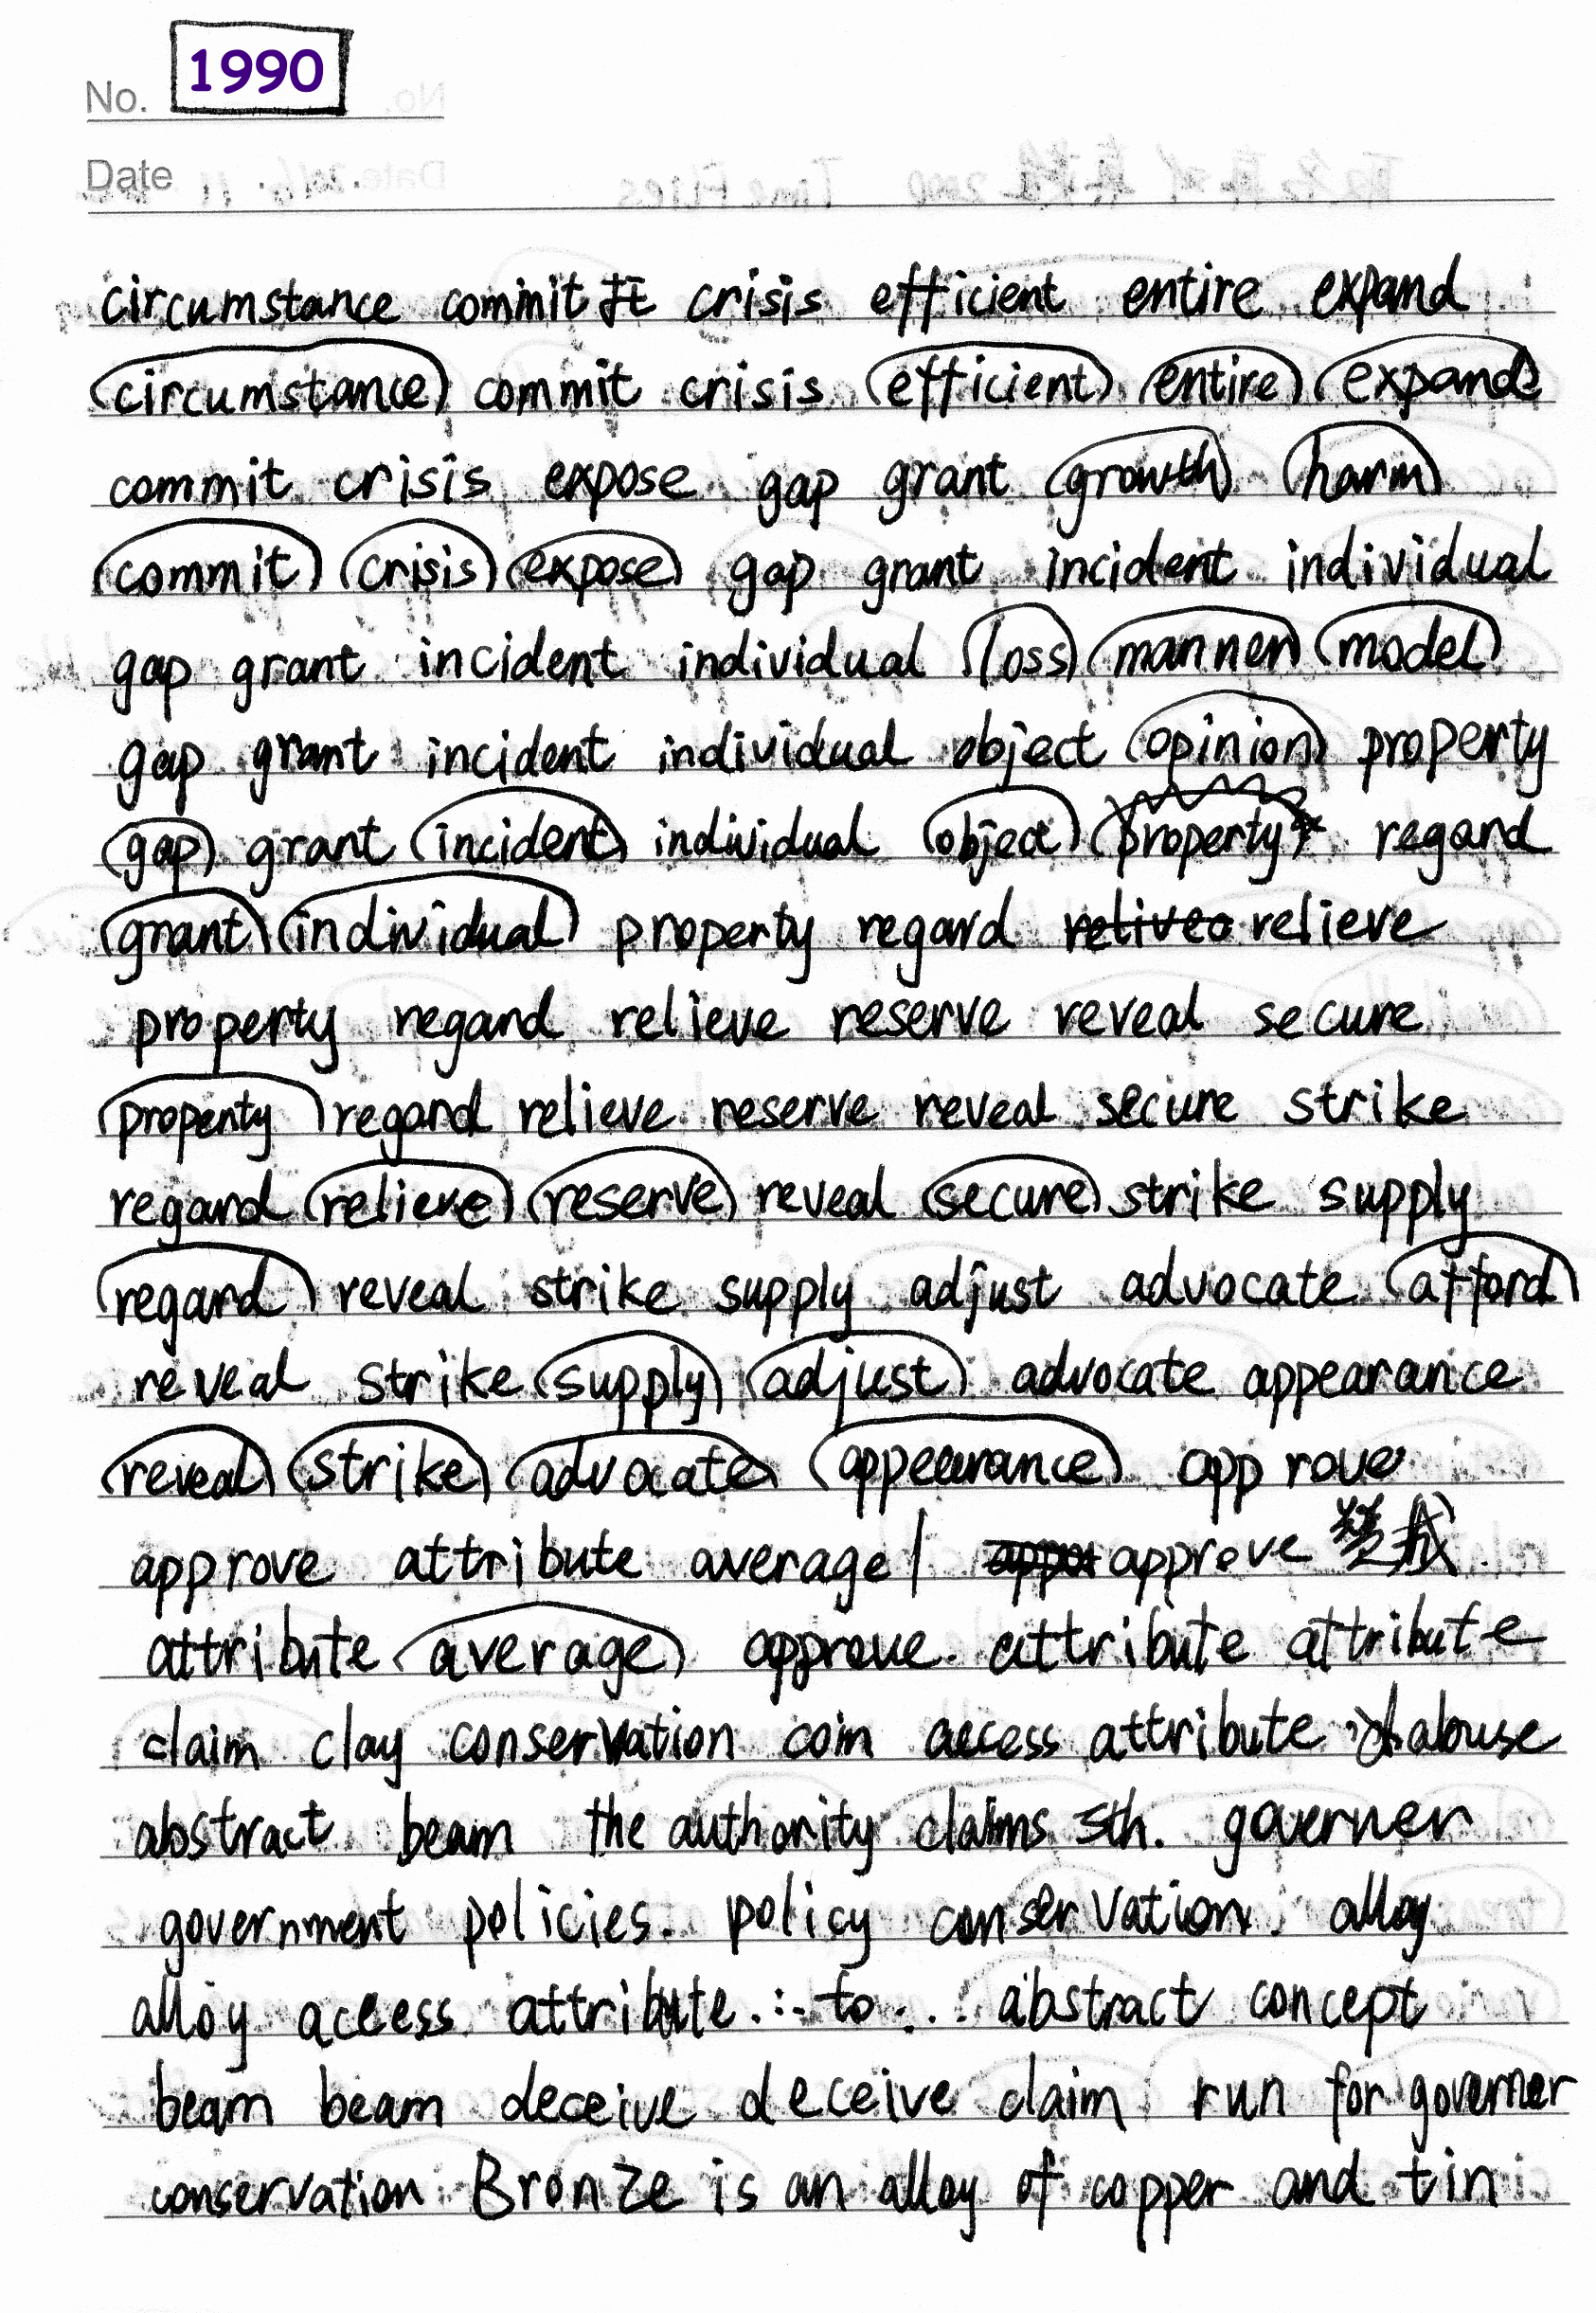 No. 1990
Date
circumstance commit 犯 crisis efficient entire expand
circumstance commit crisis efficient entire expand
commit crisis expose gap grant growth harm
commit crisis expose gap grant incident individual
gap grant incident individual loss manner model
gap grant incident individual object opinion property
gap grant incident individual object property regard
grant individual property regard reliveo relieve
property regard relieve reserve reveal secure
property regard relieve reserve reveal secure strike
regard relieve reserve reveal secure strike supply
regard reveal strike supply adjust advocate afford
reveal strike supply adjust advocate appearance
reveal strike advocate appearance approve
approve attribute average approve 赞成
attribute average approve attribute attribute
claim clay conservation coin access attribute abuse
abstract beam the authority claims sth. governer
government policies. policy conservation alloy
alloy access attribute ... to ... abstract concept
beam beam deceive deceive claim run for governer
conservation Bronze is an alloy of copper and tin